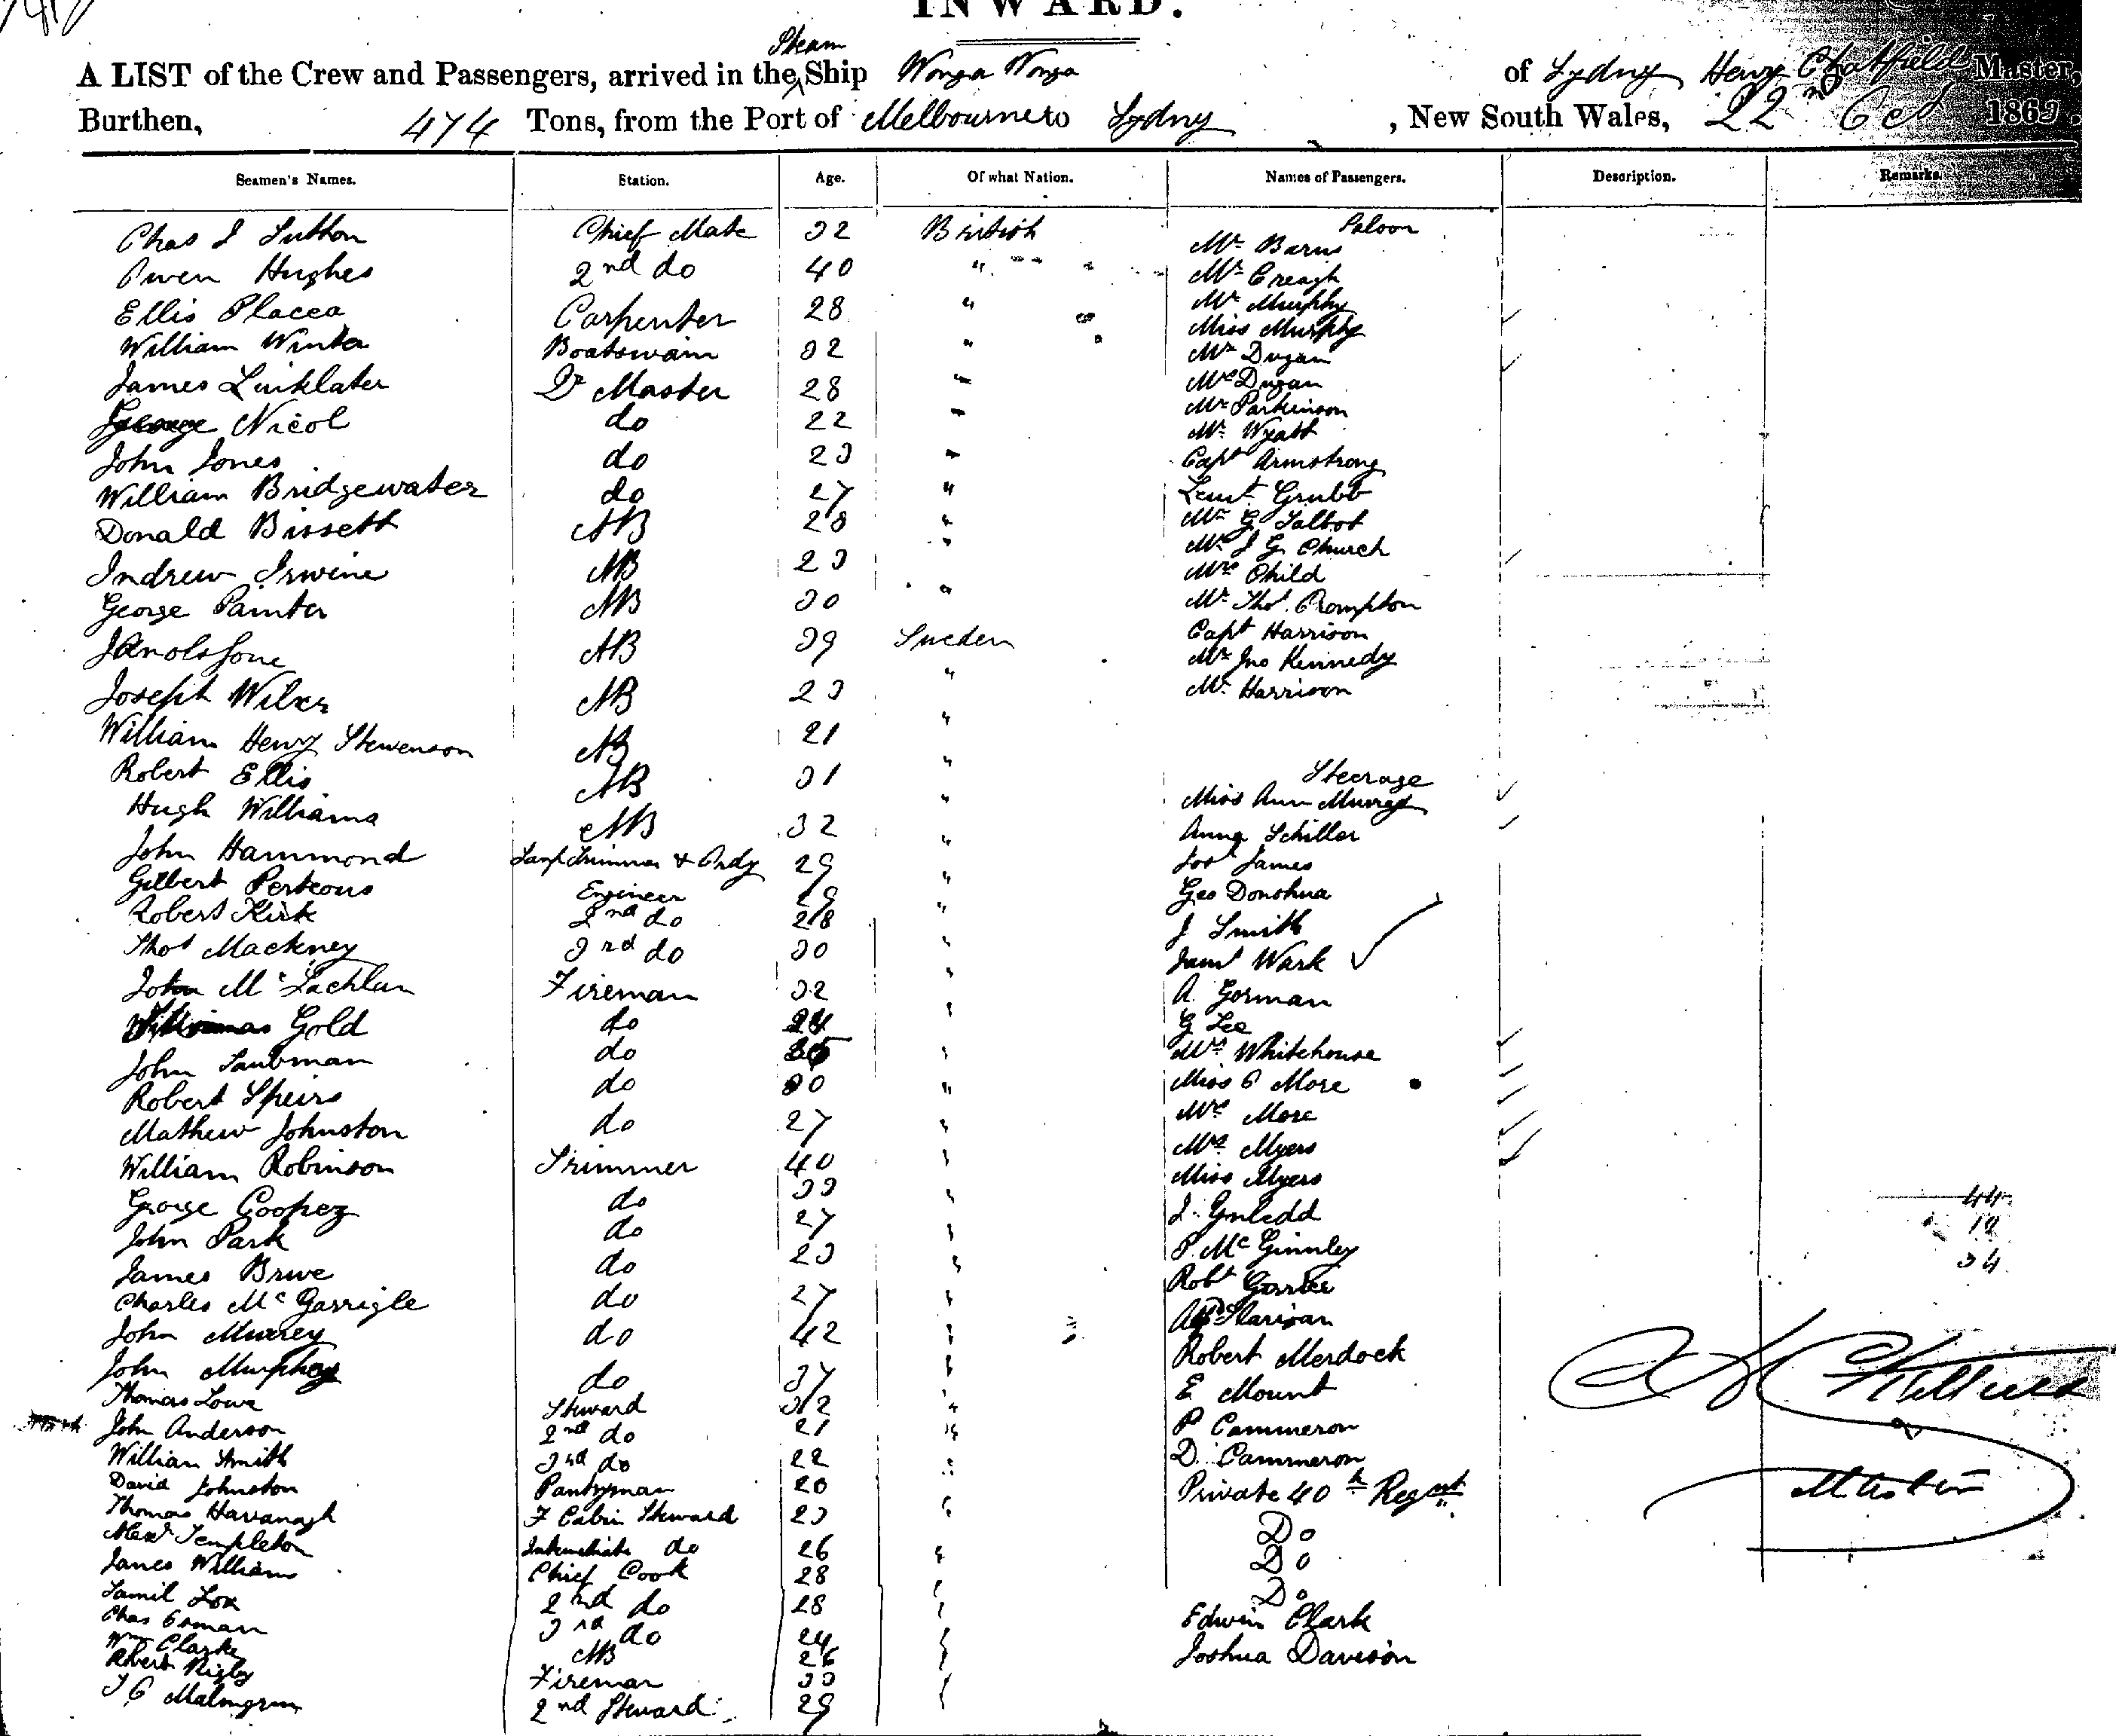 INWARD.
A LIST of the Crew and Passengers, arrived in the Steam Ship Wonga Wonga of Sydny Henry Chatfield Master,
Burthen, 474 Tons, from the Port of Melbourne to Sydny , New South Wales, 22nd Oct 186
Seamen's Names. Station. Age. Of what Nation. Names of Passengers. Description. Remarks.
Saloon
Chas J Sutton Chief Mate 32 British Mr Barns
Owen Hughes 2nd do 40 " Mr Creagh
Ellis Placea Carpenter 28 " Mr Murphy
Miss Murphy
William Winter Boatswain 32 " Mr Dugan
James Linklater Qr Master 28 " Mrs Dugan
Mr Parkinson
George Nicol do 22 " Mr Wyatt
John Jones do 23 " Capt Armstrong
William Bridgewater do 27 " Leiut Grubb
Donald Bissett AB 28 " Mr G Talbot
Mr J G Church
Andrew Irwine AB 23 " Mrs Child
George Painter AB 30 " Mr Thos Crompton
AB 39 Sueden Capt Harrison
Mr Jno Kennedy
Joseph Wilks AB 23 " Mr Harrison
William Henry Stewenson AB 21 "
Robert Ellis AB 31 " Steerage
Hugh Williams AB 32 " Miss Ann Murray
Anna Schiller
John Hammond Lamp Trimmer & Ordy 29 " Jos James
Gilbert Perteous Engineer " Geo Donohua
Robert Kirk 2nd do 28 " J Smith
Thos Mackney 3rd do 30 " Jams Wark
John McLachlan Fireman 32 " A. Gorman
Gold do 24 " G Lee
John Taubman do " Mrs Whitehouse
Robert Speirs do 30 " Miss C More
Mathew Johnston do 27 " Mrs More
William Robinson Trimmer 40 " Mrs Myers
Miss Myers
George Cooper do 33 " 44
John Park do 27 " P. McGinnley 12
James Brwe do 23 " Robt 34
Charles McGarrigle do 27 "
John Murrey do 42 " Robert Merdock
John Murphey do 37 " E Mount
Thomas Lowe Steward 32 "
John Anderson 2nd do 21 " P Cammeron
William Smith 3rd do 22 " D. Cammeron
David Johnston Pantryman 20 " Private 40th Regmt
Thomas Havanagh F Cabin Steward 23 " Do
Alexr Templeton Intermediate do 26 " Do
James Williams Chief Cook 28 " Do
Samil Fox 2nd do 28 " Edwin Clark
Chas Osman 3rd do 24 " Joshua Davison
Wm Clarke AB 26 "
Robert Rigby Fireman 33 "
J C Malmgrun 2nd Steward 29 "
Master